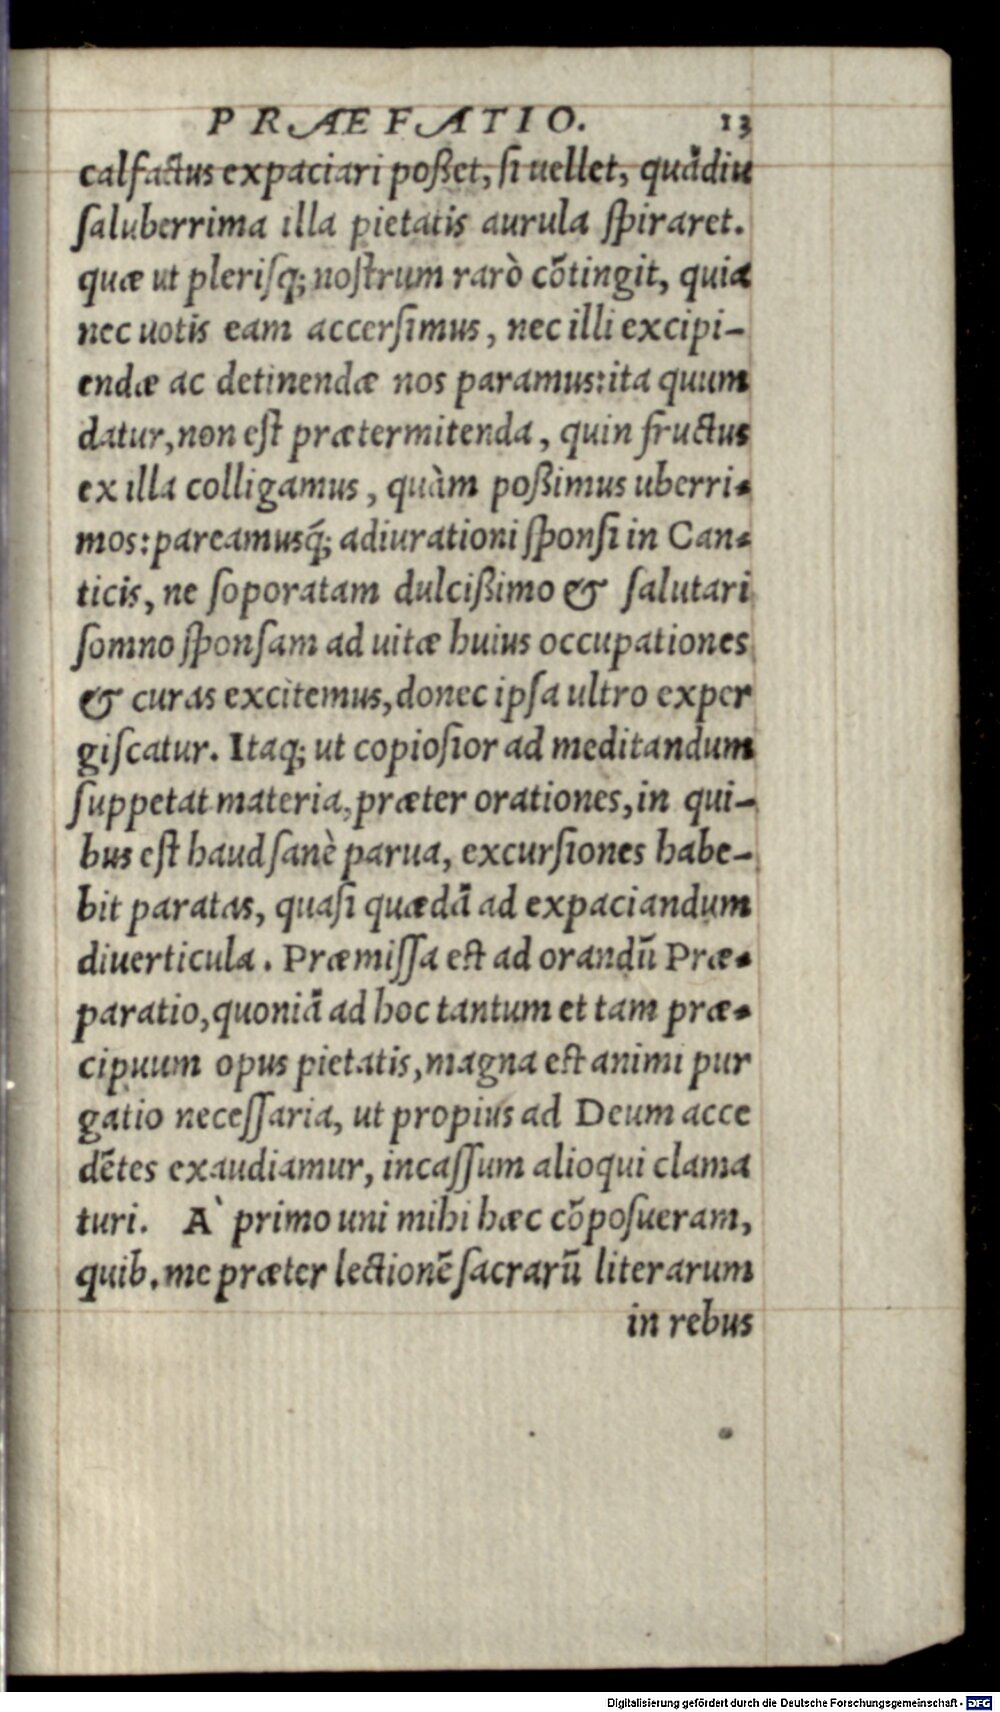 PRÆFATIO. 13
calfactus expaciari poßet, ſi uellet, quādiu
ſaluberrima illa pietatis aurula ſpiraret.
quæ ut pleriſq; noſtrum rarò cōtingit, quia
nec uotis eam accerſimus, nec illi excipi-
endæ ac detinendæ nos paramus: ita quum
datur, non eſt prætermitenda, quin fructus
ex illa colligamus, quàm poßimus uberri-
mos: pareamusq́; adiurationi ſponſi in Can-
ticis, ne ſoporatam dulcißimo & ſalutari
ſomno ſponſam ad uitæ huius occupationes
& curas excitemus, donec ipſa ultro exper
giſcatur. Itaq; ut copioſior ad meditandum
ſuppetat materia, præter orationes, in qui-
bus eſt haud ſanè parua, excurſiones habe-
bit paratas, quaſi quædā ad expaciandum
diuerticula. Præmiſſa eſt ad orandū Præ-
paratio, quoniā ad hoc tantum et tam præ-
cipuum opus pietatis, magna eſt animi pur
gatio neceſſaria, ut propius ad Deum acce
dētes exaudiamur, incaſſum alioqui clama
turi. A` primo uni mihi hæc cōpoſueram,
quib. me præter lectionē ſacrarū literarum
in rebus
Digitalisierung gefördert durch die Deutsche Forschungsgemeinschaft - DFG